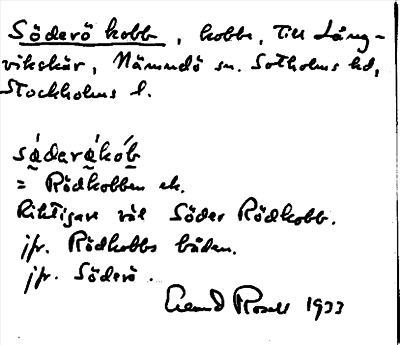 Söderö kobb, kobbe, Till Lång-
vikskär, Nämndö sn. Sotholms hd,
Stockholms l.
sádarákób
= Rödkobben ek.
Riktigare väl Söder Rödkobb.
jfr. Rödkobbs båden.
jfr. Söderö.
1933